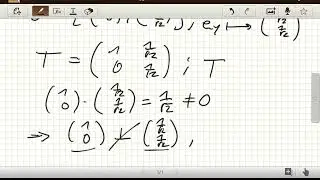 ), e_y ↦ (1/√2 1/√2)
T = (1 1/√2; 0 1/√2) ; T
(1 0) · (1/√2 1/√2) = 1/√2 ≠ 0
⇒ (1 0) ⊥̸ (1/√2 1/√2) ,